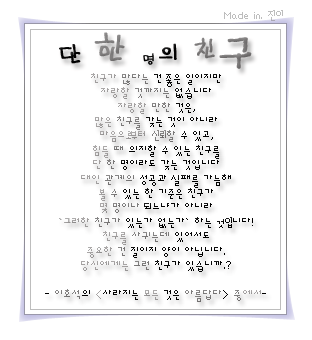 Made in. 진이
단 한 명의 친구
친구가 많다는 건 좋은 일이지만
자랑할 것까지는 없습니다
자랑할 만한 것은,
많은 친구를 갖는 것이 아니라
마음으로부터 신뢰할 수 있고,
힘들 때 의지할 수 있는 친구를
단 한 명이라도 갖는 것입니다
대인 관계의 성공과 실패를 가늠해
볼 수 있는 한 기준은 친구가
몇 명이나 되는냐가 아니라
'그러한 친구가 있는가 없는가' 하는 것입니다!
친구를 사귀는데 있어서도
중요한 건 질이지 양이 아닙니다.
당신에게는 그런 친구가 있습니까?
- 이호석의 <사라지는 모든 것은 아름답다> 중에서-